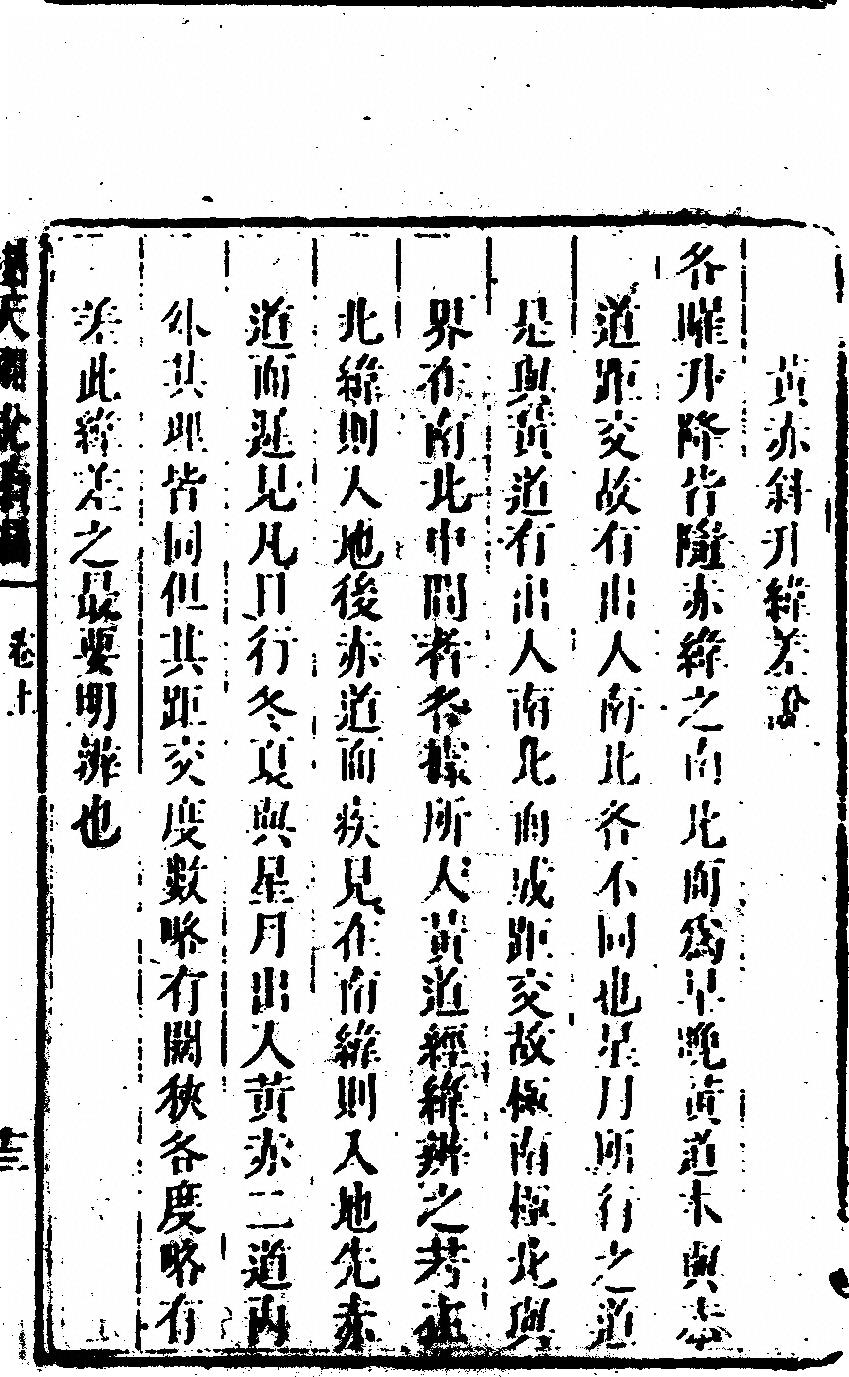 黃赤斜升緯差說
各曜升降皆隨赤緯之南北而爲早晚黃道本與赤
道距交故有出入南北各不同也星月所行之道
是與黃道有出入南北而成距交故極南極北與
界在南北中間者各據所入黃道經緯辨之考在
北緯則入地後赤道而疾見在南緯則入地先赤
道而遲見凡日行冬夏與星月出入黃赤二道內
外其理皆同但其距交度數略有闊狹各度略有
差此緯差之最要明辨也
卷十